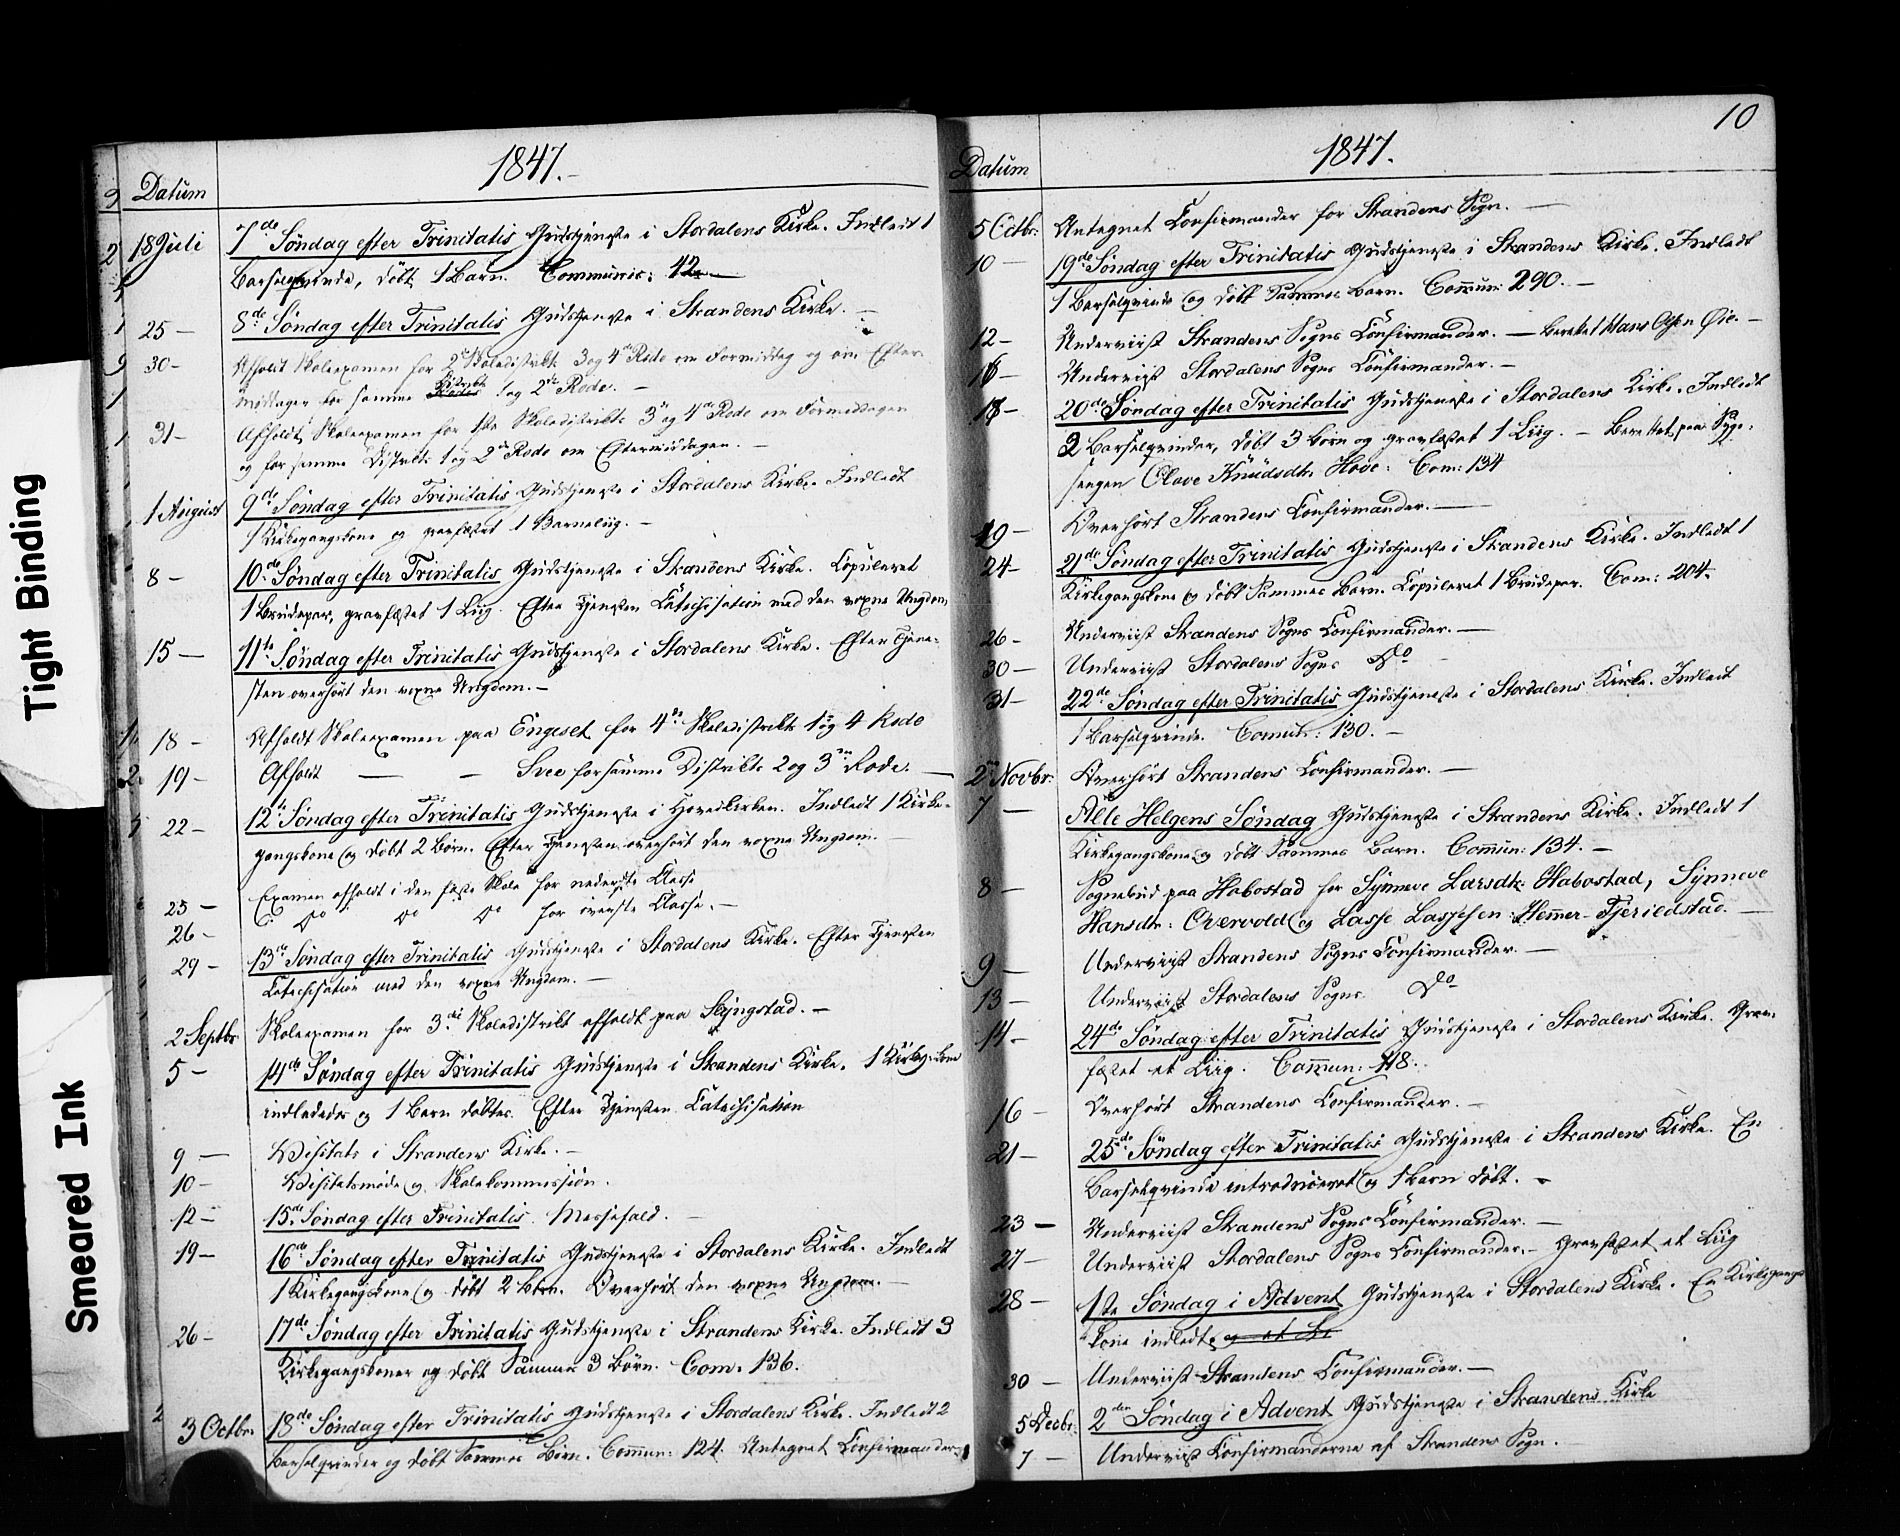 Tight Binding
Smeared Ink
1847.-
Datum
18 Juli
7de Søndag efter Trinitatis Gudstjeneste i Stordalens Kirke. Indledt 1
Barselqvinde, døbt 1 Barn. Communic: 42
25 -
8de Søndag efter Trinitatis Gudstjeneste i Strandens Kirke. -
30 -
Afholdt Skoleexamen for 2det Skoledistrikt 3 og 4de Rode om Formiddag og om Efter-
middagen for samme Distrikt 1 og 2den Rode. -
31 -
Afholdt Skoleexamen for 1ste Skoledistrikts 3die og 4de Rode om Formiddagen
og for samme Distrikts 1 og 2den Rode om Eftermiddagen. -
1 August
9de Søndag efter Trinitatis Gudstjeneste i Stordalens Kirke. Indledt
1 Kirkegangskone og gravfæstet 1 Barneliig. -
8 -
10de Søndag efter Trinitatis Gudstjeneste i Strandens Kirke. Copuleret
1 Brudepar, gravfæstet 1 Liig. Efter Tjenesten Catechisation med den voxne Ungdom
15 -
11te Søndag efter Trinitatis Gudstjeneste i Stordalens Kirke. Efter Tjene-
sten overhørt den voxne Ungdom. -
18 -
Afholdt Skoleexamen paa Engeset for 4de Skoledistrikt 1 og 4 Rode
19 -
Afholdt — - Svee for samme Distrikts 2 og 3die Rode. -
22 -
12te Søndag efter Trinitatis Gudstjeneste i Hovedkirken. Indledt 1 Kirke-
gangskone og døbt 2 Børn. Efter Tjenesten overhørt den voxne Ungdom. -
25 -
Examen afholdt i den faste Skole for nederste Classe
26 -
Do Do Do for øverste Classe. -
29 -
13de Søndag efter Trinitatis Gudstjeneste i Stordalens Kirke. Efter Tjenesten
Catechisation med den voxne Ungdom. -
2 Septbr
Skoleexamen for 3die Skoledistrikt afholdt paa Slyngstad. -
5 -
14de Søndag efter Trinitatis Gudstjeneste i Strandens Kirke. 1 Kirkeg:kone
indlededes og 1 Barn døbtes. Efter Tjenesten Catechisation
9 -
Visitats i Strandens Kirke. -
10 -
Visitatsmøde og Skolekommission.
12 -
15de Søndag efter Trinitatis. Messefald. -
19 -
16de Søndag efter Trinitatis Gudstjeneste i Stordalens Kirke. Indledt
1 Kirkegangskone og døbt 2 Børn. Overhørt den voxne Ungdom. -
26 -
17de Søndag efter Trinitatis Gudstjeneste i Strandens Kirke. Indledt 3
Kirkegangskoner og døbt Sammes 3 Børn. Com: 136.
3 Octbr.
18de Søndag efter Trinitatis Gudstjeneste i Stordalens Kirke. Indledt 2
Barselqvinder og døbt Sammes Børn. Commun: 124. Antegnet Confirmander
10
1847.
Datum
5 Octbr.
Antegnet Confirmander for Strandens Sogn. -
10 -
19de Søndag efter Trinitatis Gudstjeneste i Strandens Kirke. Indledt
1 Barselqvinde og døbt Sammes Barn. Commun: 290. -
12 -
Underviist Strandens Sogns Confirmander. - Berettet Hans Olsen Øie. -
16 -
Underviist Stordalens Sogns Confirmander. -
17 -
20de Søndag efter Trinitatis Gudstjeneste i Stordalens Kirke. Indledt
3 Barselqvinder, døbt 3 Børn og gravfæstet 1 Liig. - Berettet paa Syge-
sengen Olave Knudsdtr. Hove. Com: 134
19 -
Overhørt Strandens Confirmander. -
24 -
21de Søndag efter Trinitatis Gudstjeneste i Strandens Kirke. Indledt 1
Kirkegangskone og døbt Sammes Barn. Copuleret 1 Brudepar. Com: 204.
26 -
Underviist Strandens Sogns Confirmander. -
30 -
Underviist Stordalens Sogns Do -
31 -
22de Søndag efter Trinitatis Gudstjeneste i Stordalens Kirke. Indledt
1 Barselqvinde. Comun: 130. -
2 Novbr.
Overhørt Strandens Confirmander. -
7 -
Alle Helgens Søndag Gudstjeneste i Strandens Kirke. Indledt 1
Kirkegangskone og døbt Sammes Barn. Commun: 134. -
8 -
Sognebud paa Habostad for Synneve Larsdtr: Habostad, Synneve
Hansdtr: Overvold og Lasse Lassesen Hemmer-Fjerildstad. -
9 -
Underviist Strandens Sogns Confirmander. -
13 -
Underviist Stordalens Sogns Do
14 -
24de Søndag efter Trinitatis Gudstjeneste i Stordalens Kirke. Grav-
fæstet et Liig. Commun: 118.
16 -
Overhørt Strandens Confirmander. -
21 -
25de Søndag efter Trinitatis Gudstjeneste i Strandens Kirke. En
Barselqvinde introduceret og 1 Barn døbt. -
23 -
Underviist Strandens Sogns Confirmander. -
27 -
Underviist Stordalens Sogns Confirmander. - Gravfæstet et Liig
28 -
1ste Søndag i Advent Gudstjeneste i Stordalens Kirke. En Kirkegangs-
kone indledt og et
30 -
Underviist Strandens Confirmander. -
5 Decbr.
2den Søndag i Advent Gudstjeneste i Strandens Kirke
7 -
Underviist Confirmanderne af Strandens Sogn.